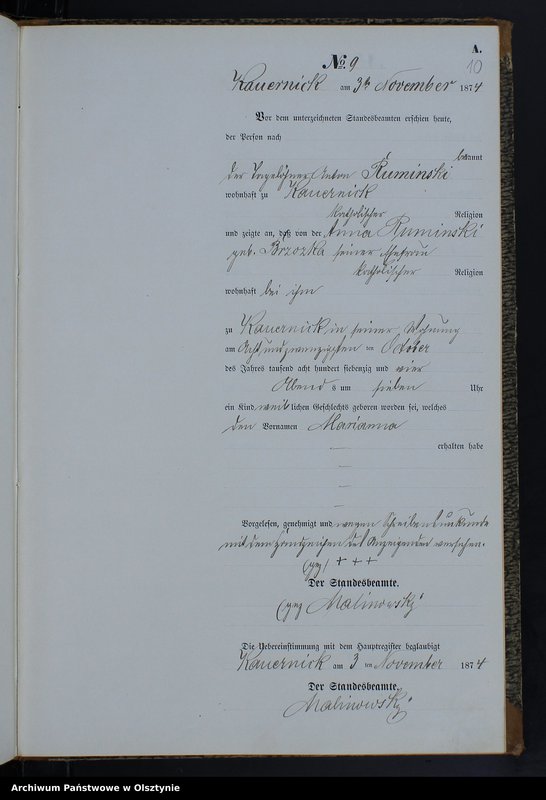 A.
No. 9
10
Kauernick am 3ten November 1874
Vor dem unterzeichneten Standesbeamten erschien heute,
der Person nach
bekannt
der Tagelöhner Anton Ruminski
wohnhaft zu Kauernick
katholischer Religion
und zeigte an, daß von der Anna Ruminski
geb. Brzozka seiner Ehefrau
katholischer Religion
wohnhaft bei ihm
zu Kauernick, in seiner Wohnung
am Acht und zwanzigsten ten October
des Jahres tausend acht hundert siebenzig und vier
Abends um sieben Uhr
ein Kind weiblichen Geschlechts geboren worden sei, welches
den Vornamen Marianna
erhalten habe
Vorgelesen, genehmigt und wegen Schreibensunkunde
mit dem Handzeichen des Anzeigenden versehen.
(gez) + + +
Der Standesbeamte.
(gez Malinowski
Die Uebereinstimmung mit dem Hauptregister beglaubigt
Kauernick am 3 ten November 1874
Der Standesbeamte.
Malinowski
Archiwum Państwowe w Olsztynie